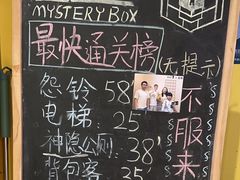 MYSTERY BOX
最快通关榜(无提示)
怨铃 58'
电梯: 25'
神隐公厕: 38'
背包客: 35'
不服来